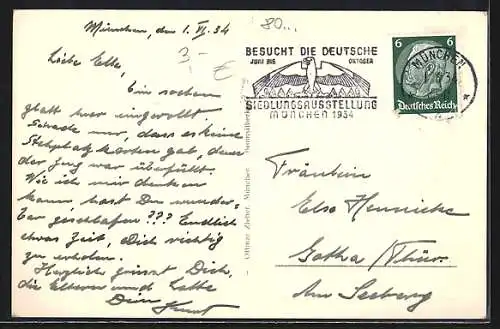 München, den 1. VI. 34
80...
3,- €
Liebe Elle,
Bin soeben
glatt hier eingerollt.
Schade nur, dass es keine
Stehplatzkarten gab, denn
der Zug war überfüllt.
Wie ich mir denken
kann, hast Du wunder-
bar geschlafen??? Endlich
etwas Zeit, Dich richtig
zu erholen.
Herzlich grüsst Dich,
die Eltern und Lotte
Dein Kurt
Ottmar Zieher, München
BESUCHT DIE DEUTSCHE
JUNI BIS OKTOBER
SIEDLUNGSAUSSTELLUNG
MÜNCHEN 1934
MÜNCHEN
6 6
Deutsches Reich
Fräulein
Else Hennicke
Gotha /Thür.
Am Seeberg